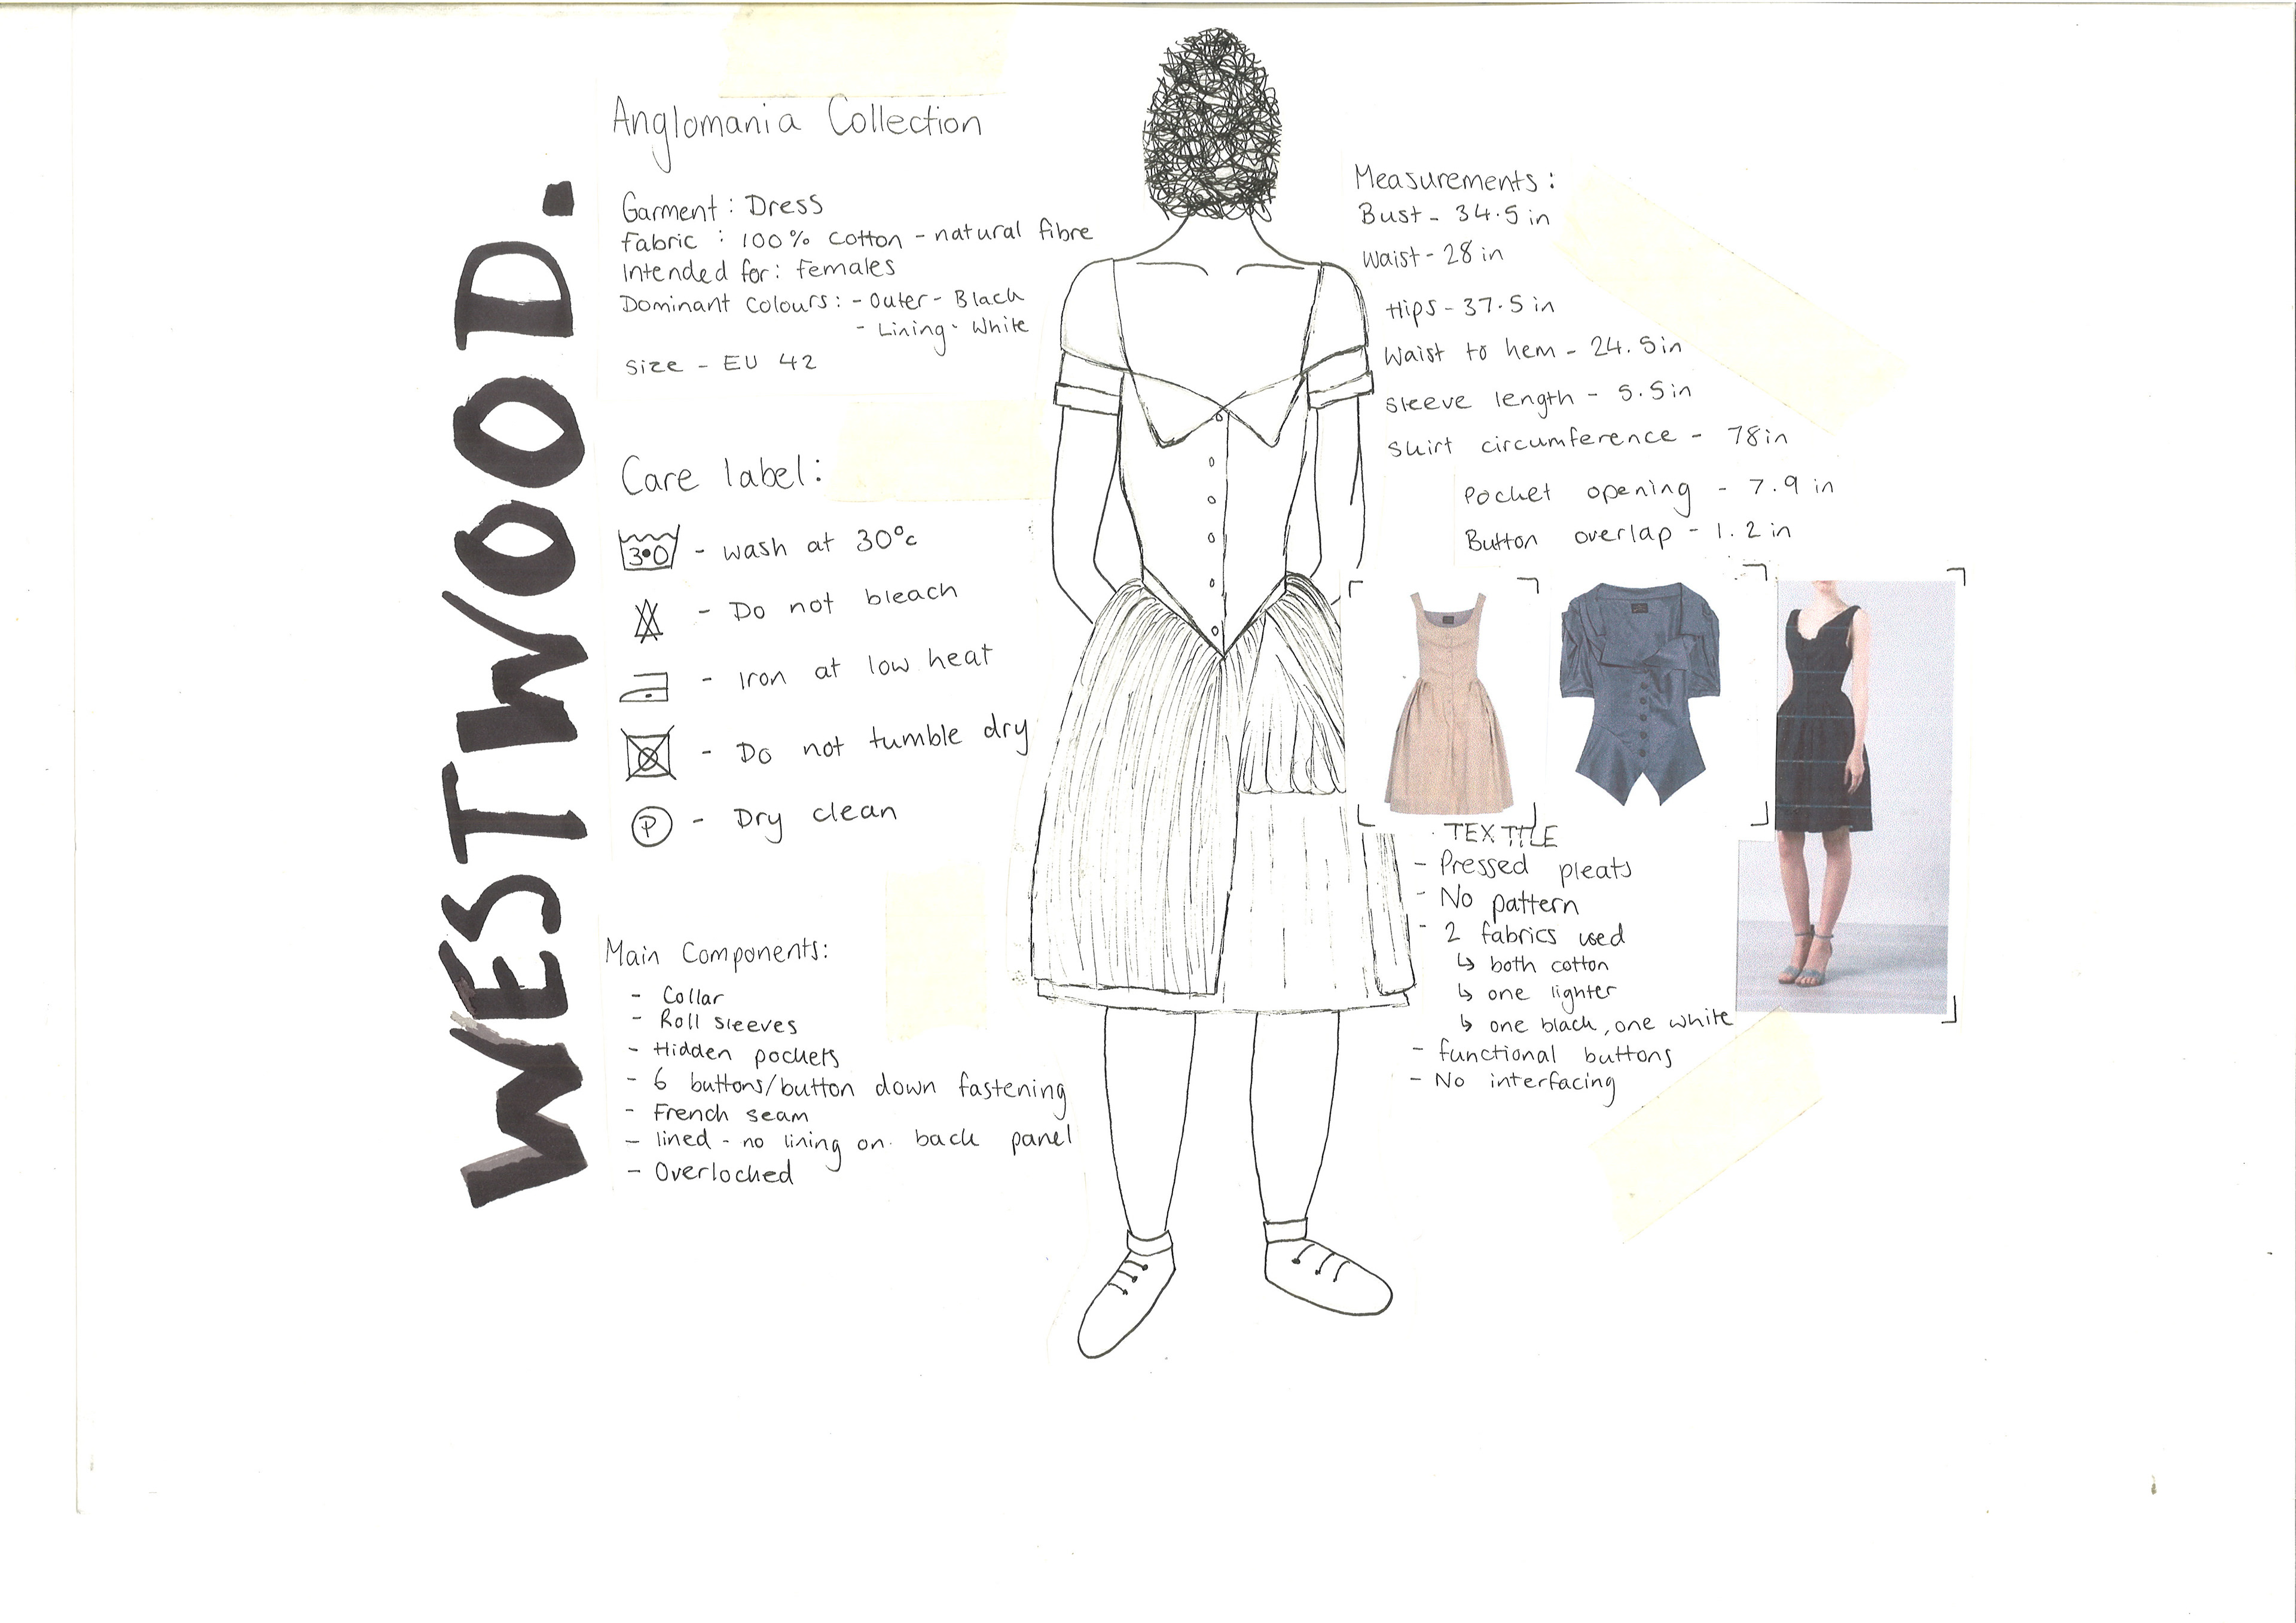 WESTWOOD.
Anglomania Collection
Garment : Dress
Fabric : 100% cotton - natural fibre
Intended for : females
Dominant colours : - Outer - Black
- Lining - White
Size - EU 42
Care label:
30 - wash at 30°c
- Do not bleach
- Iron at low heat
- Do not tumble dry
P - Dry clean
Main Components:
- Collar
- Roll sleeves
- Hidden pockets
- 6 buttons/button down fastening
- French seam
- lined - no lining on back panel
- Overlocked
Measurements :
Bust - 34.5 in
Waist - 28 in
Hips - 37.5 in
Waist to hem - 24.5 in
Sleeve length - 5.5 in
Skirt circumference - 78 in
Pocket opening - 7.9 in
Button overlap - 1.2 in
TEXTILE
- Pressed pleats
- No pattern
- 2 fabrics used
↳ both cotton
↳ one lighter
↳ one black, one white
- functional buttons
- No interfacing